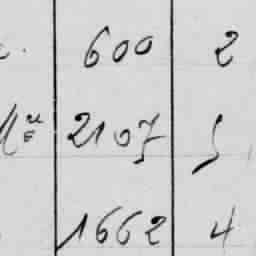 600 2
2107 5
1662 4